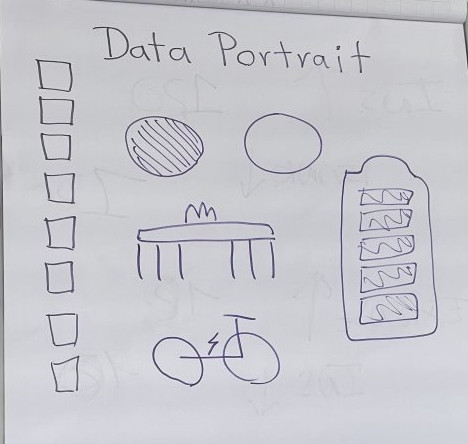 Data Portrait